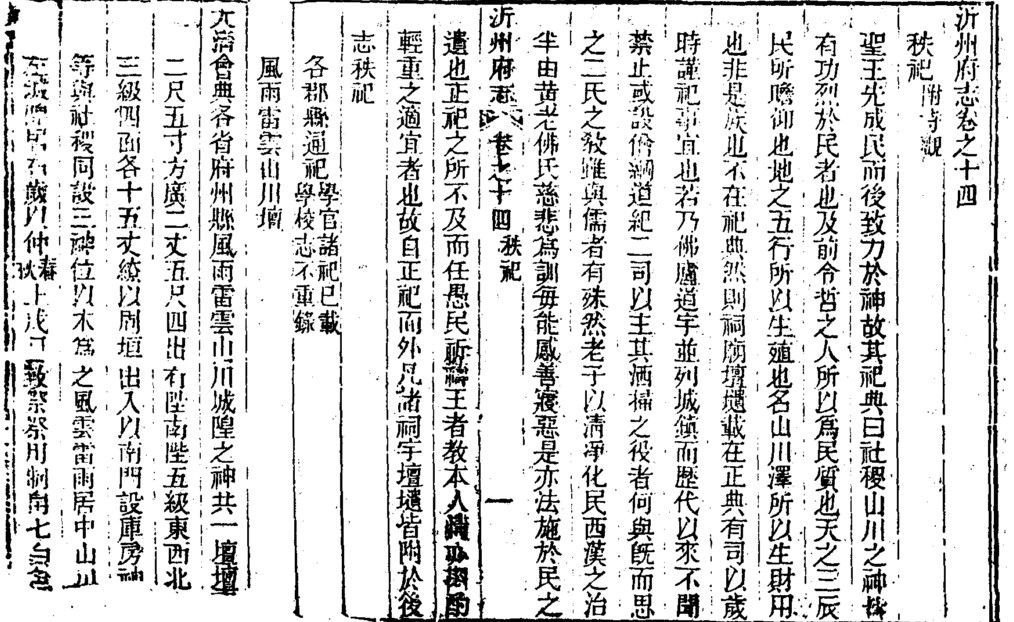 沂州府志卷之十四
秩祀 附寺觀
聖王先成民而後致力於神故其祀典曰社稷山川之神皆
有功烈於民者也及前令哲之人所以為民質也天之三辰
民所瞻仰也地之五行所以生殖也名山川澤所以生財用
也非是族也不在祀典然則祠廟壇壝載在正典有司以歲
時謹祀事宜也若乃佛廬道宇並列城鎮而歷代以來不聞
禁止或設僧綱道紀二司以主其洒掃之役者何與旣而思
之二氏之敎雖與儒者有殊然老子以清淨化民西漢之治
半由黃老佛氏慈悲為訓每能感善寢惡是亦法施於民之
沂州府志 卷之十四 秩祀 一
遺也正祀之所不及而任愚民祈禱王者教本人情 斟酌
輕重之適宜者也故自正祀而外凡諸祠宇壇壝皆附於後
志秩祀
各郡縣通祀 學官諸祀已載學校志不重錄
風雨雷雲山川壇
大清會典各省府州縣風雨雷雲山川城隍之神共一壇壇
二尺五寸方廣二丈五尺四出有陛南陛五級東西北
三級四面各十五丈繚以周垣出入以南門設庫房神
等與社稷同設三神位以木為之風雲雷雨居中山川
左城隍居右歲以仲春秋上戊日致祭祭用制帛七白色